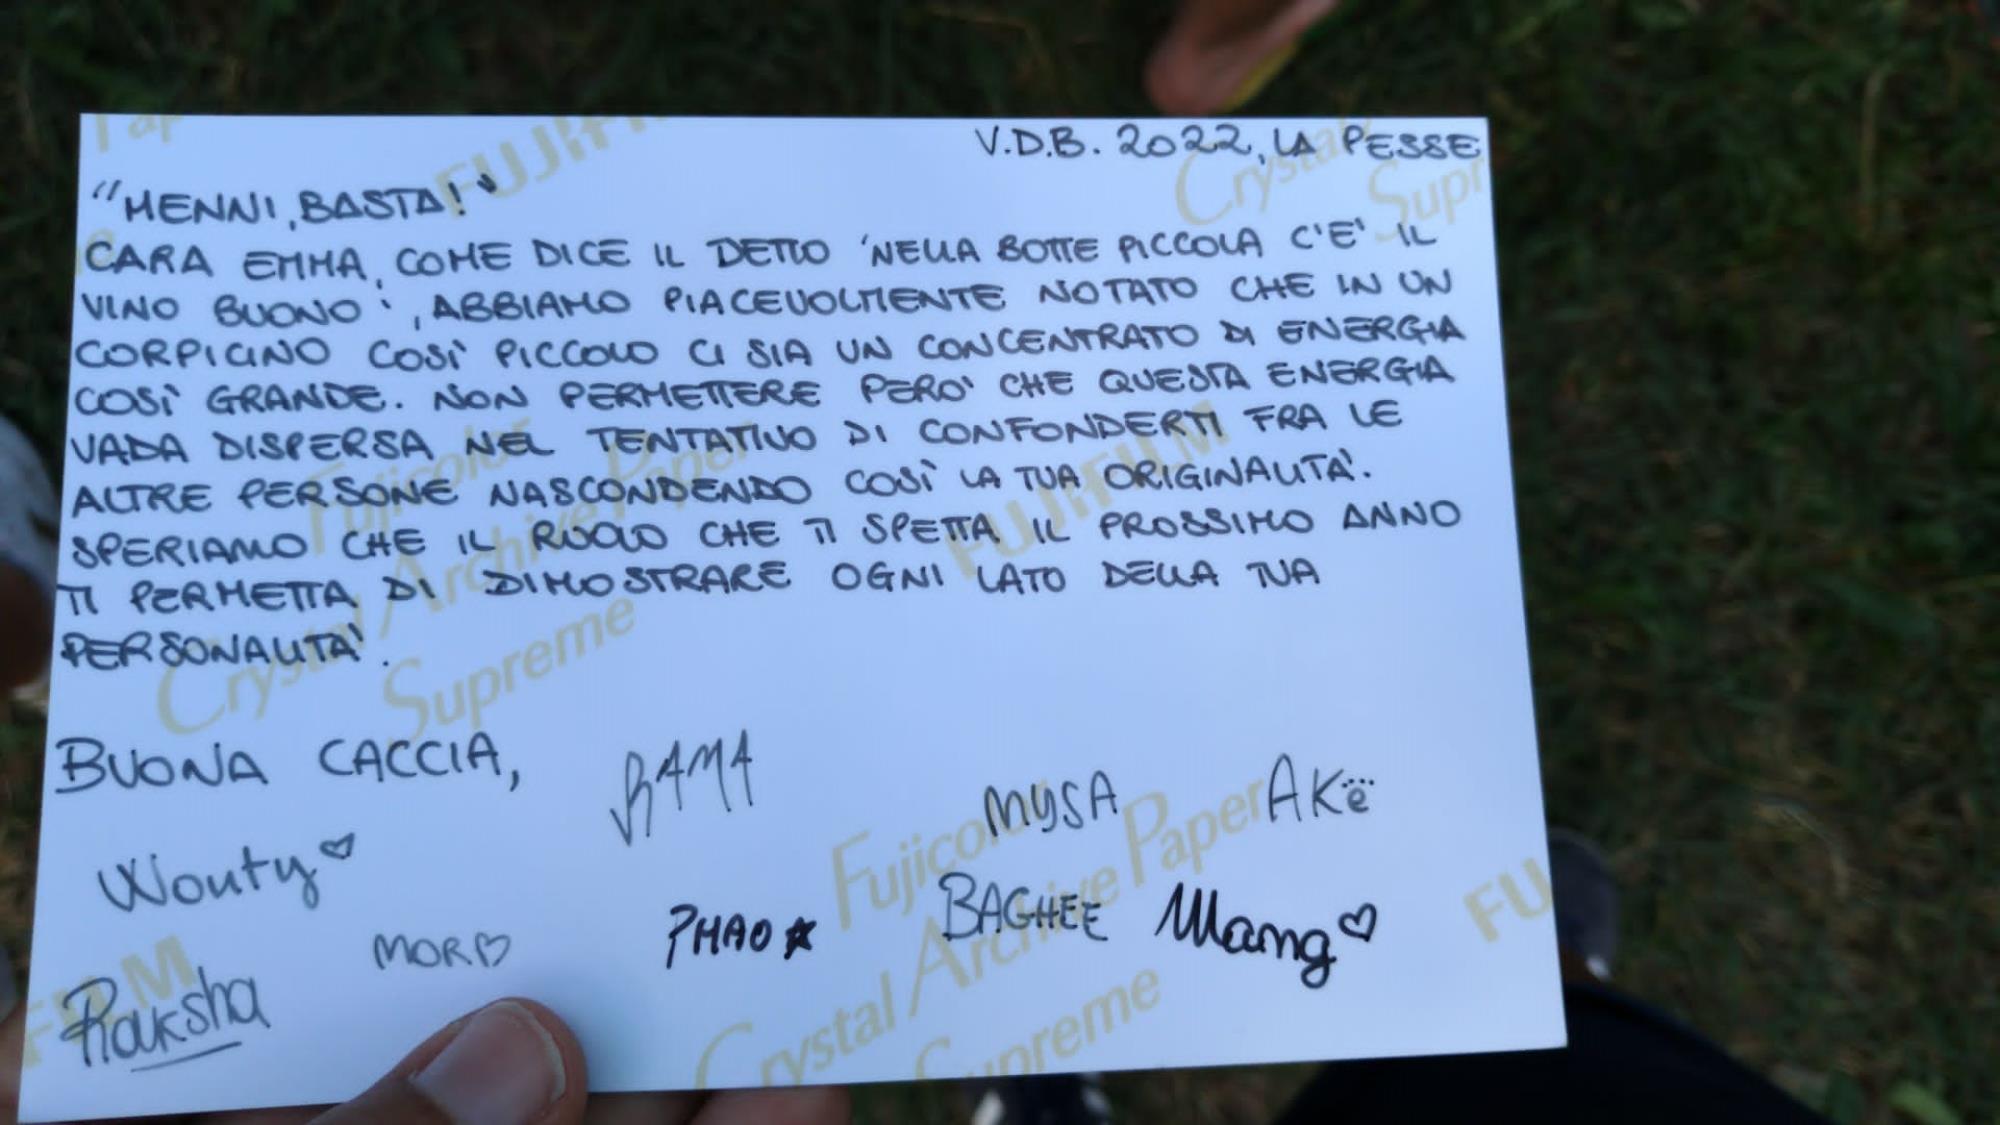 V.D.B. 2022, LA PESSE
"HENNI, BASTA!"
CARA EMMA, COME DICE IL DETTO 'NELLA BOTTE PICCOLA C'E' IL
VINO BUONO', ABBIAMO PIACEVOLMENTE NOTATO CHE IN UN
CORPICINO COSÌ PICCOLO CI SIA UN CONCENTRATO DI ENERGIA
COSÌ GRANDE. NON PERMETTERE PERO' CHE QUESTA ENERGIA
VADA DISPERSA NEL TENTATIVO DI CONFONDERTI FRA LE
ALTRE PERSONE NASCONDENDO COSÌ LA TUA ORIGINALITA'.
SPERIAMO CHE IL RUOLO CHE TI SPETTA IL PROSSIMO ANNO
TI PERMETTA DI DIMOSTRARE OGNI LATO DELLA TUA
PERSONALITA'.
BUONA CACCIA,
RAMA
MYSA
AKë
Wouty
MOR
PHAO
BAGHEE
Mang
Raksha
FUJIFILM
Crystal
Supr
Fujicolor
Crystal Archive Paper
Supreme
FUJIFILM
Fujicolor
Crystal Archive Paper
Supreme
FU
FILM